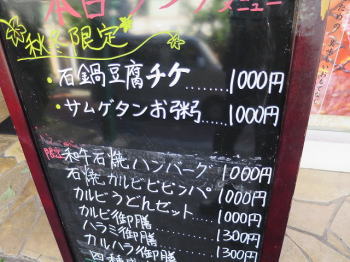 本日ランチメニュー
秋冬限定
・石鍋豆腐チゲ……1000円
・サムゲタンお粥……1000円
限定 和牛石焼ハンバーグ 1000円
石焼カルビビビンパ 1000円
カルビうどんセット……1000円
カルビ御膳……1300円
ハラミ御膳……1300円
カルハラ御膳……1300円